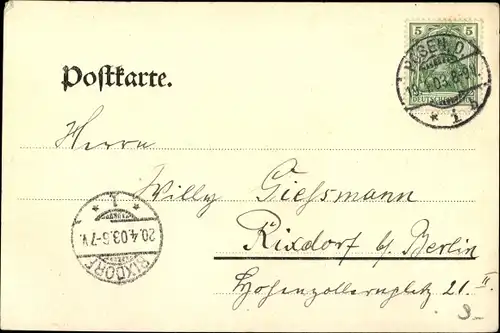 5 5
POSEN O.
19.4.03.8-9N.
DEUTSCHES
* 1 b
Postkarte.
Herrn
Willy Giessmann
Rixdorf b/ Berlin
Hohenzollernplatz 21. II
RIXDORF
20.4.03.6-7V.
* 1 *